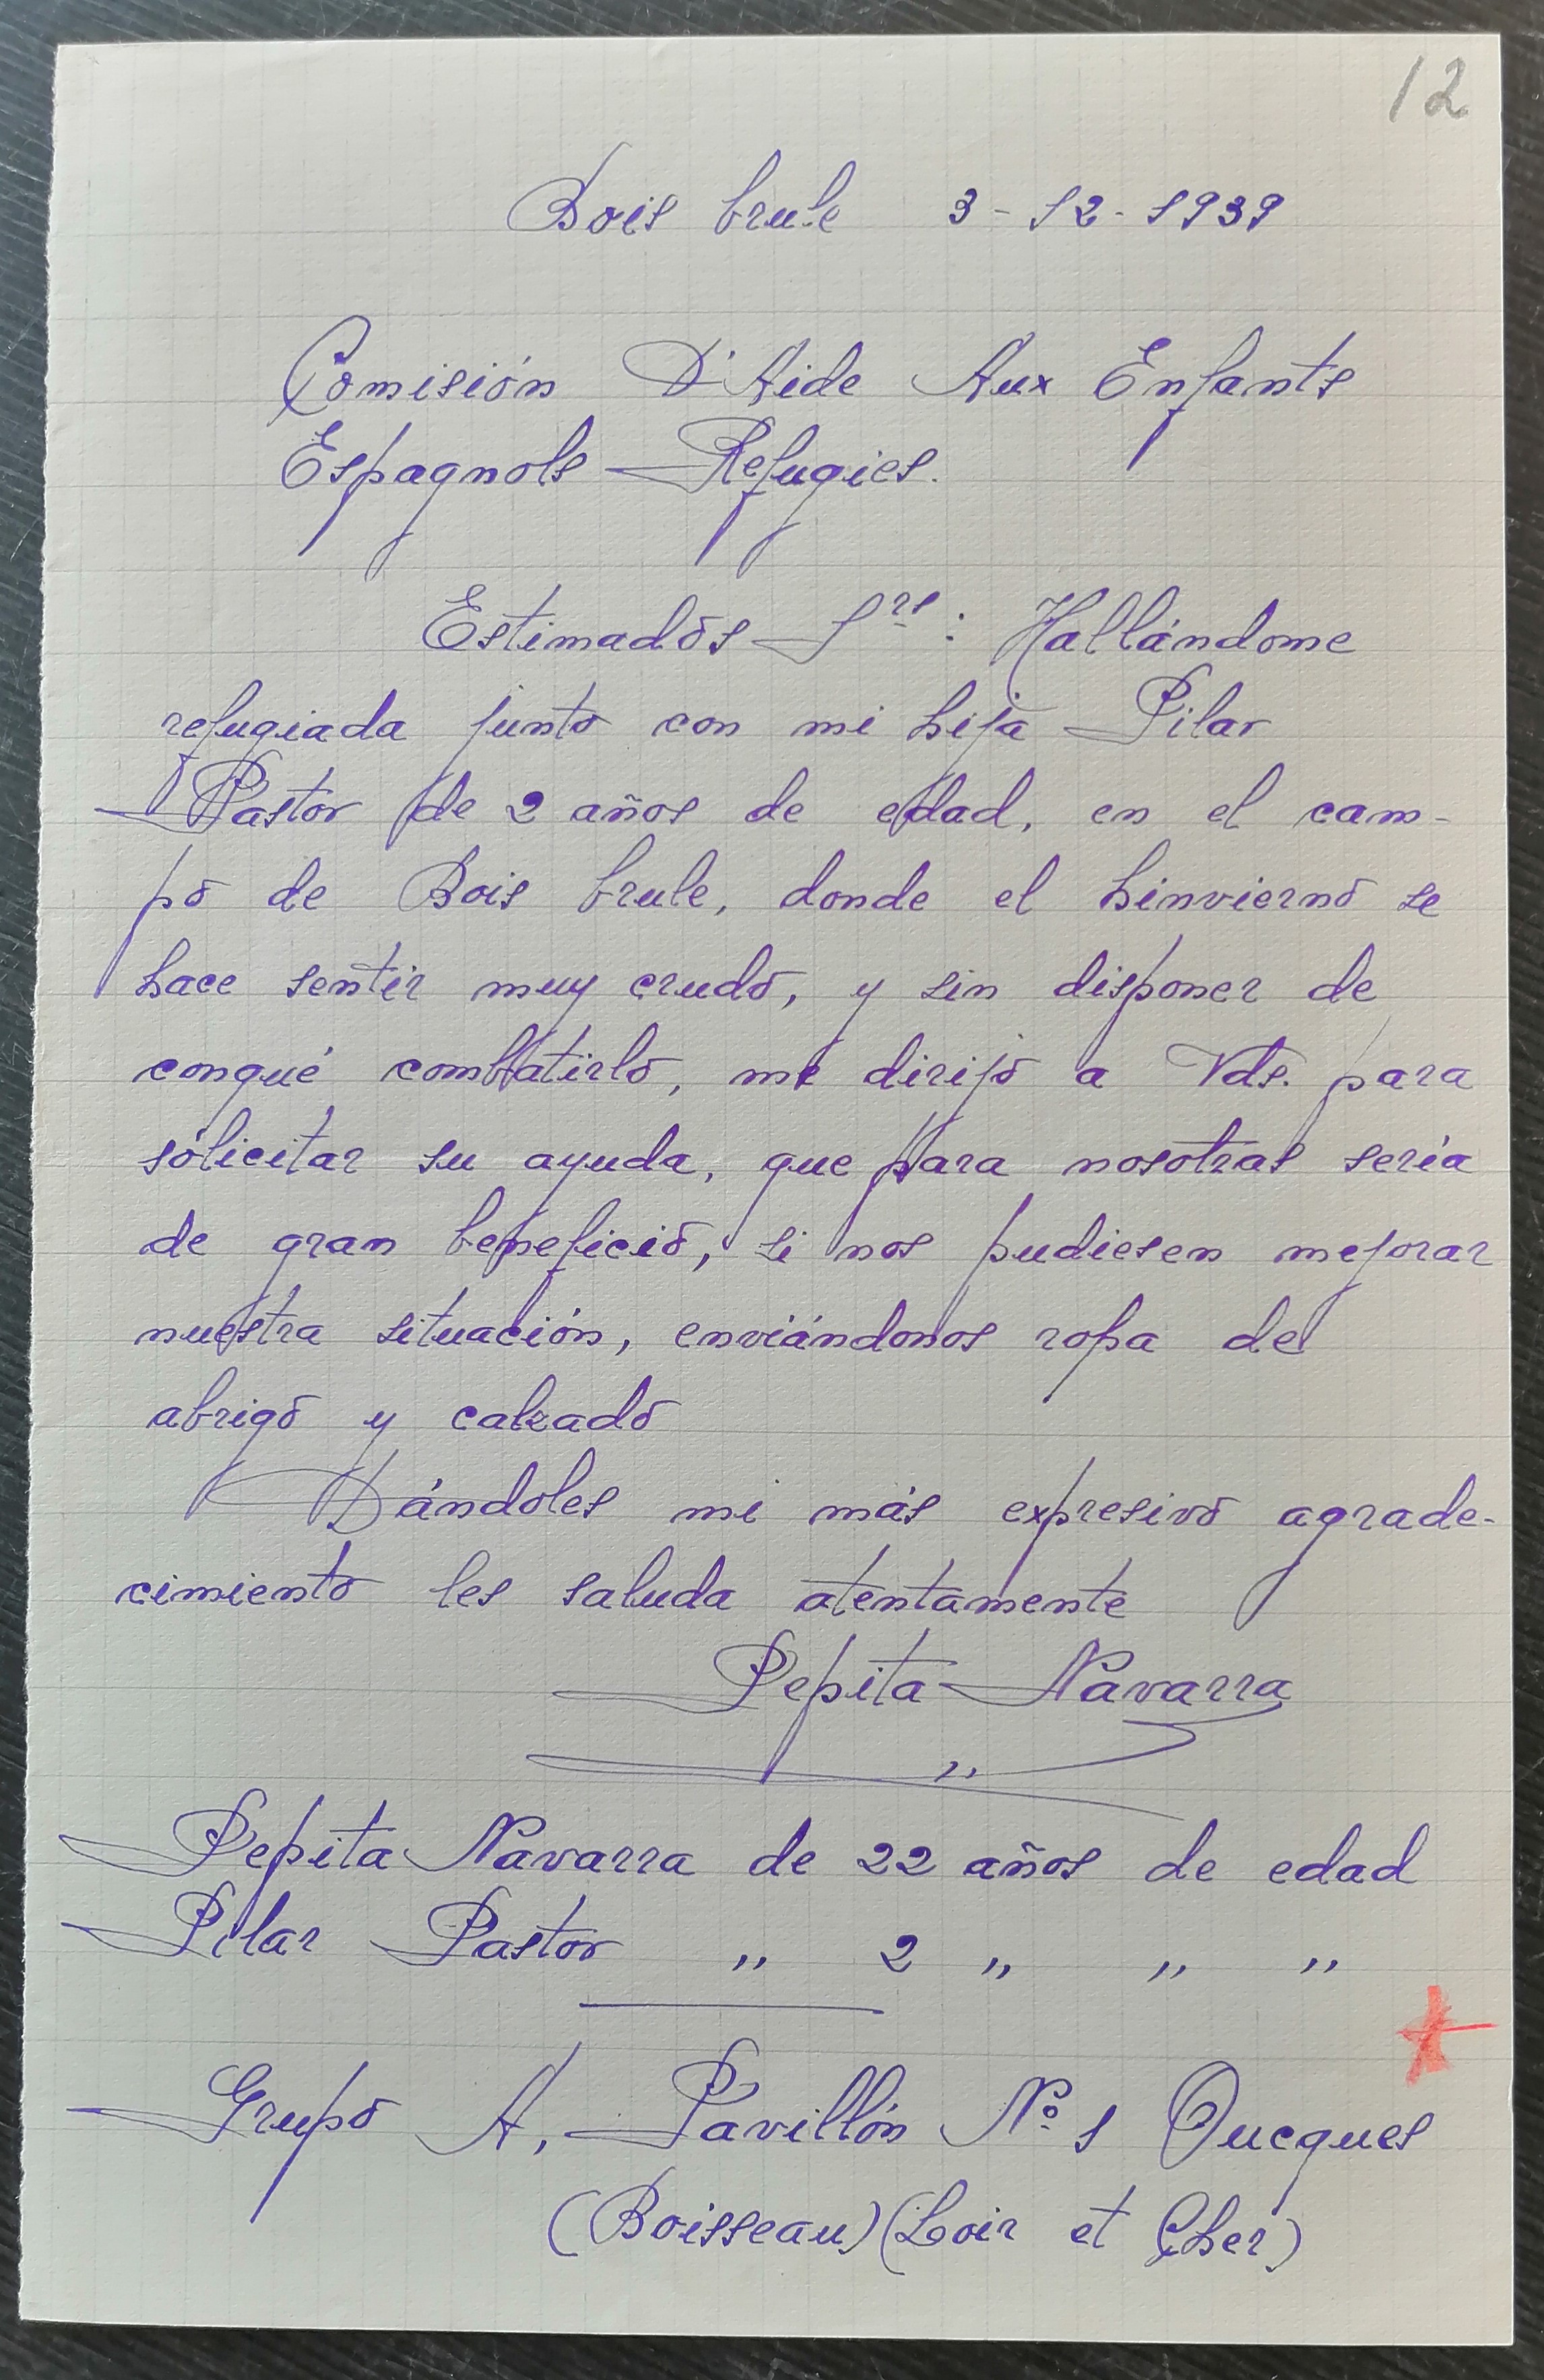 12
Bois brule 3-12-1939
Comisión D'Aide Aux Enfants
Espagnols Refugies.
Estimados Srs: Hallándome
refugiada junto con mi hija Pilar
Pastor de 2 años de edad, en el cam-
po de Bois brule, donde el hinvierno se
hace sentir muy crudo, y sin disponer de
conqué combatirlo, me dirijo a Vds. para
sólicitar su ayuda, que para nosotras sería
de gran beneficio, si nos pudiesen mejorar
nuestra situación, enviándonos ropa de
abrigo y calzado
Dándoles mi más expresivo agrade-
cimiento les saluda atentamente
Pepita Navarra
Pepita Navarra de 22 años de edad
Pilar Pastor " 2 " " "
Grupo A, Pavillón Nº 1 Oucques
(Boisseau) (Loir et Cher)